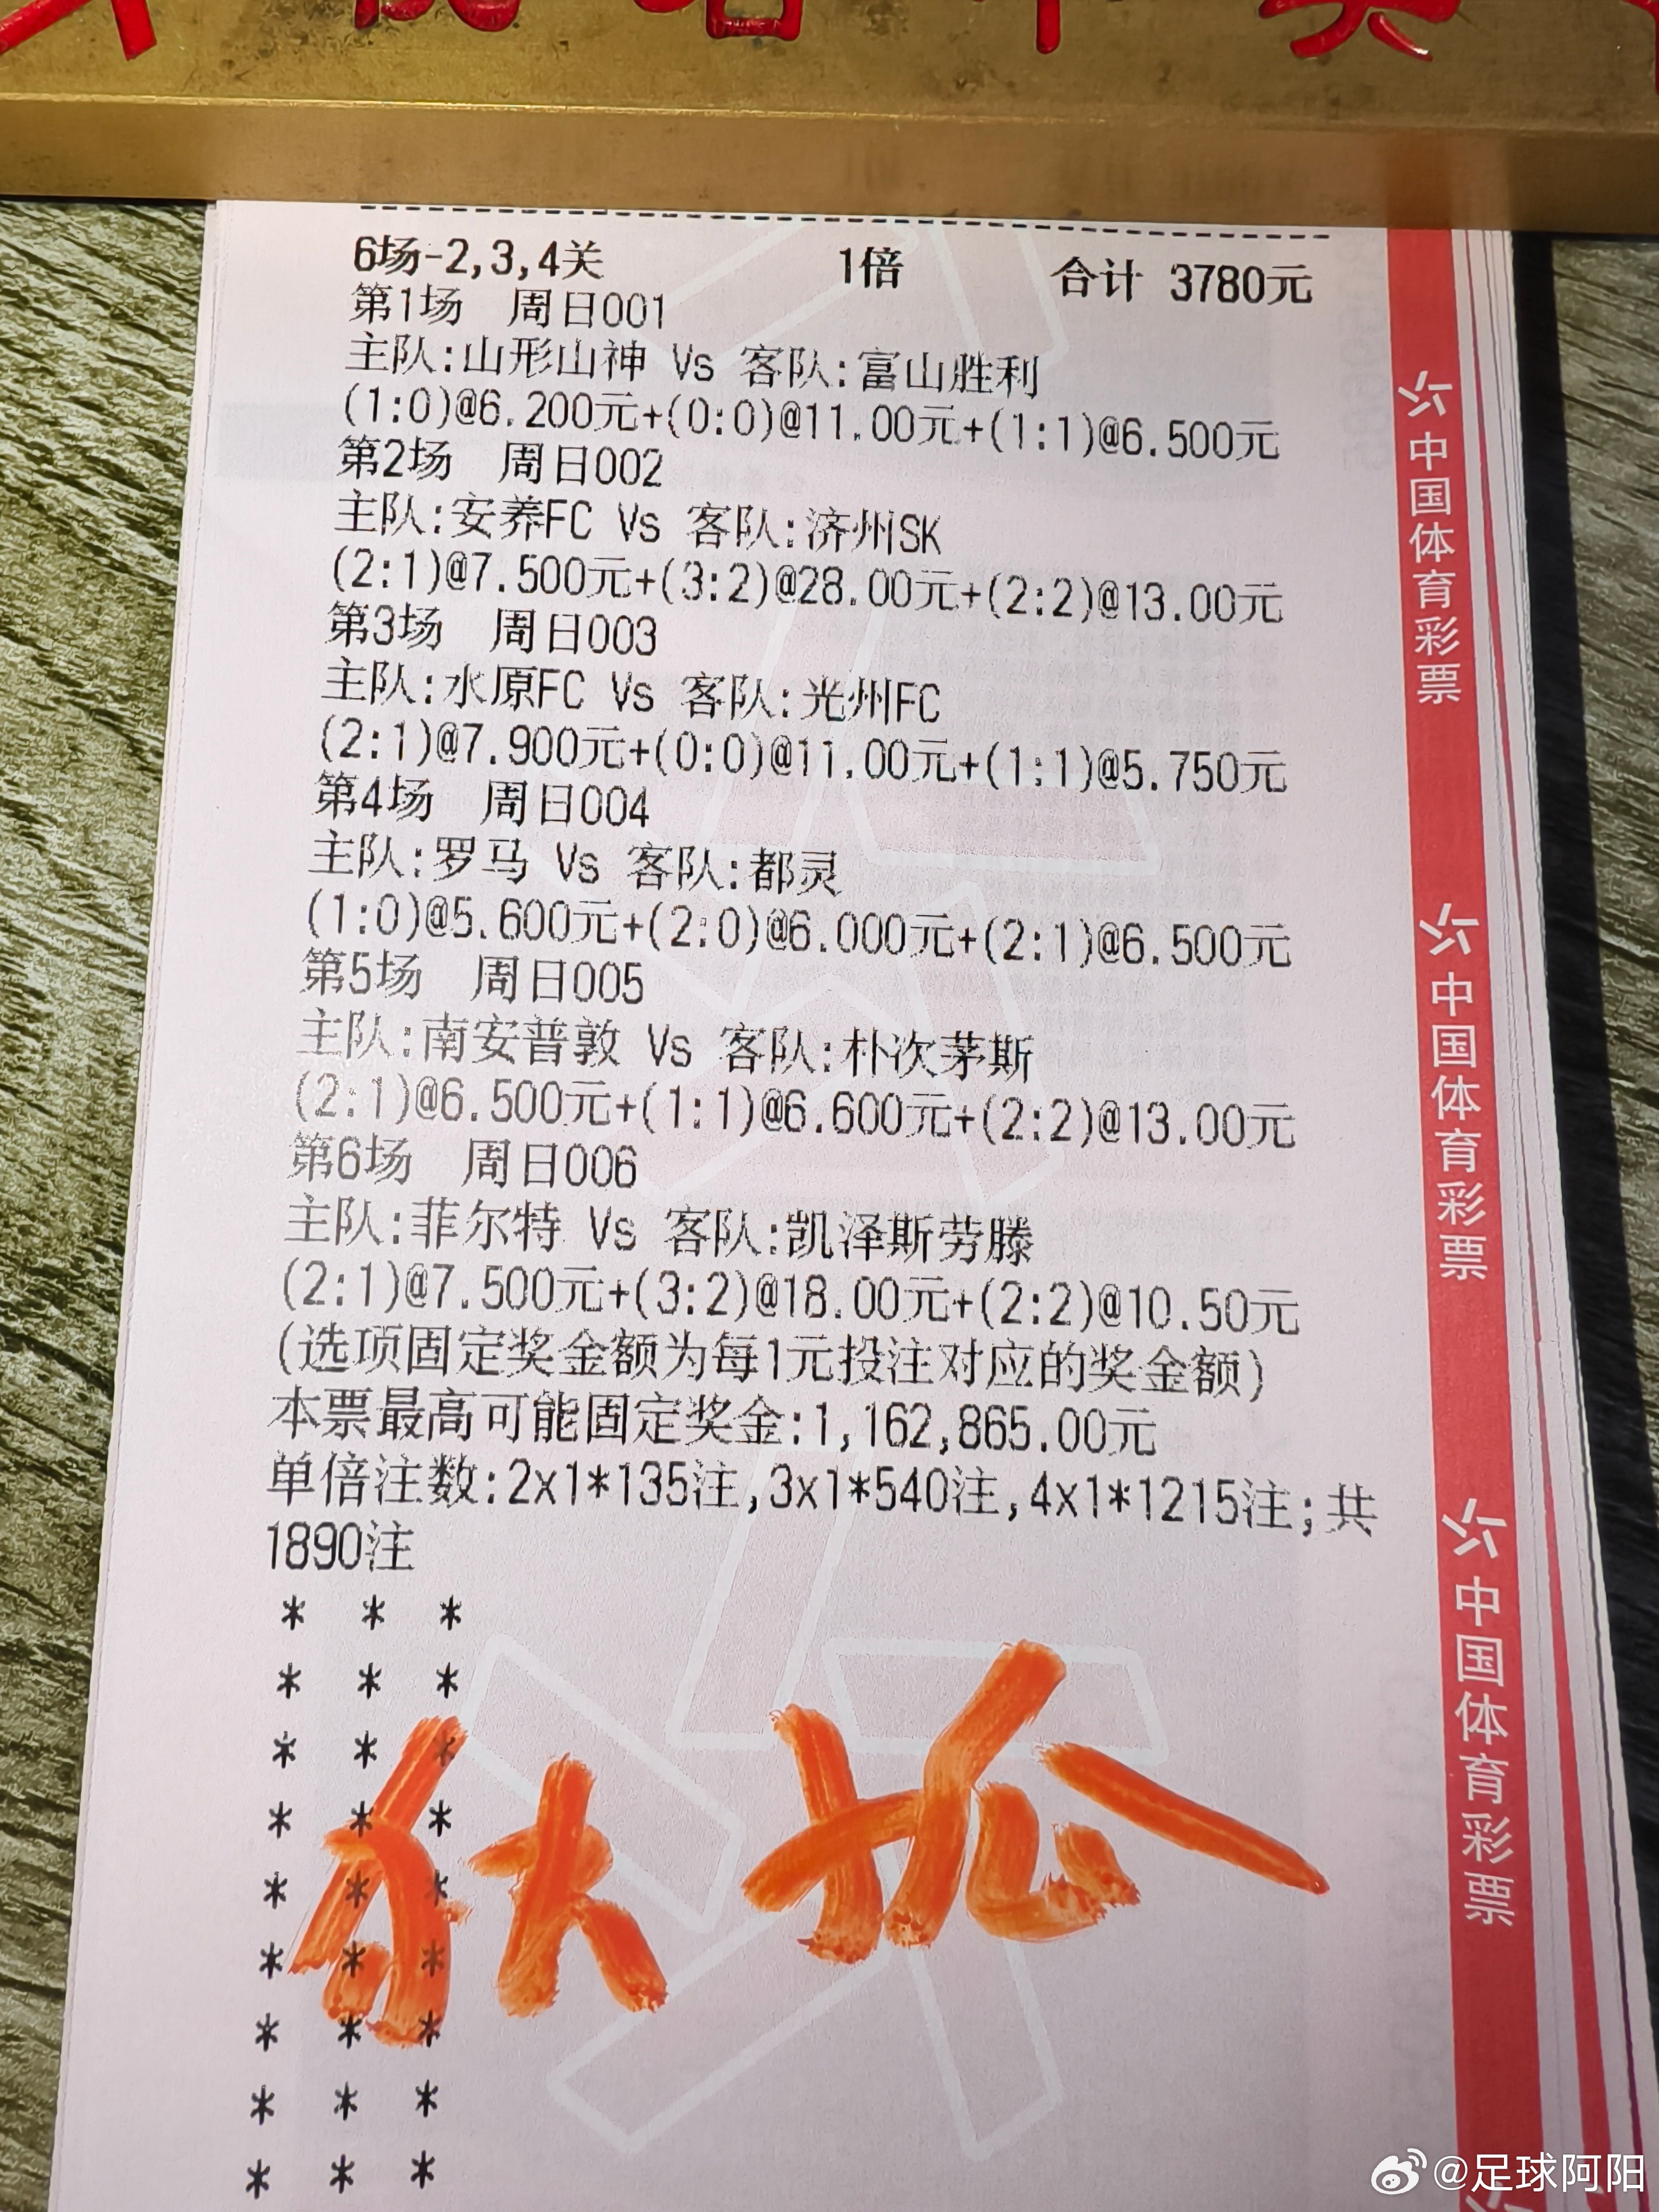 6场-2,3,4关 1倍 合计 3780元
第1场 周日001
主队:山形山神 Vs 客队:富山胜利
(1:0)@6.200元+(0:0)@11.00元+(1:1)@6.500元
第2场 周日002
主队:安养FC Vs 客队:济州SK
(2:1)@7.500元+(3:2)@28.00元+(2:2)@13.00元
第3场 周日003
主队:水原FC Vs 客队:光州FC
(2:1)@7.900元+(0:0)@11.00元+(1:1)@5.750元
第4场 周日004
主队:罗马 Vs 客队:都灵
(1:0)@5.600元+(2:0)@6.000元+(2:1)@6.500元
第5场 周日005
主队:南安普敦 Vs 客队:朴次茅斯
(2:1)@6.500元+(1:1)@6.600元+(2:2)@13.00元
第6场 周日006
主队:菲尔特 Vs 客队:凯泽斯劳滕
(2:1)@7.500元+(3:2)@18.00元+(2:2)@10.50元
(选项固定奖金额为每1元投注对应的奖金额)
本票最高可能固定奖金:1,162,865.00元
单倍注数:2x1*135注,3x1*540注,4x1*1215注;共
1890注
* * *
* * *
* * *
* * *
* * *
* * *
* * *
* * *
* * *
中国体育彩票
中国体育彩票
中国体育彩票
@足球阿阳